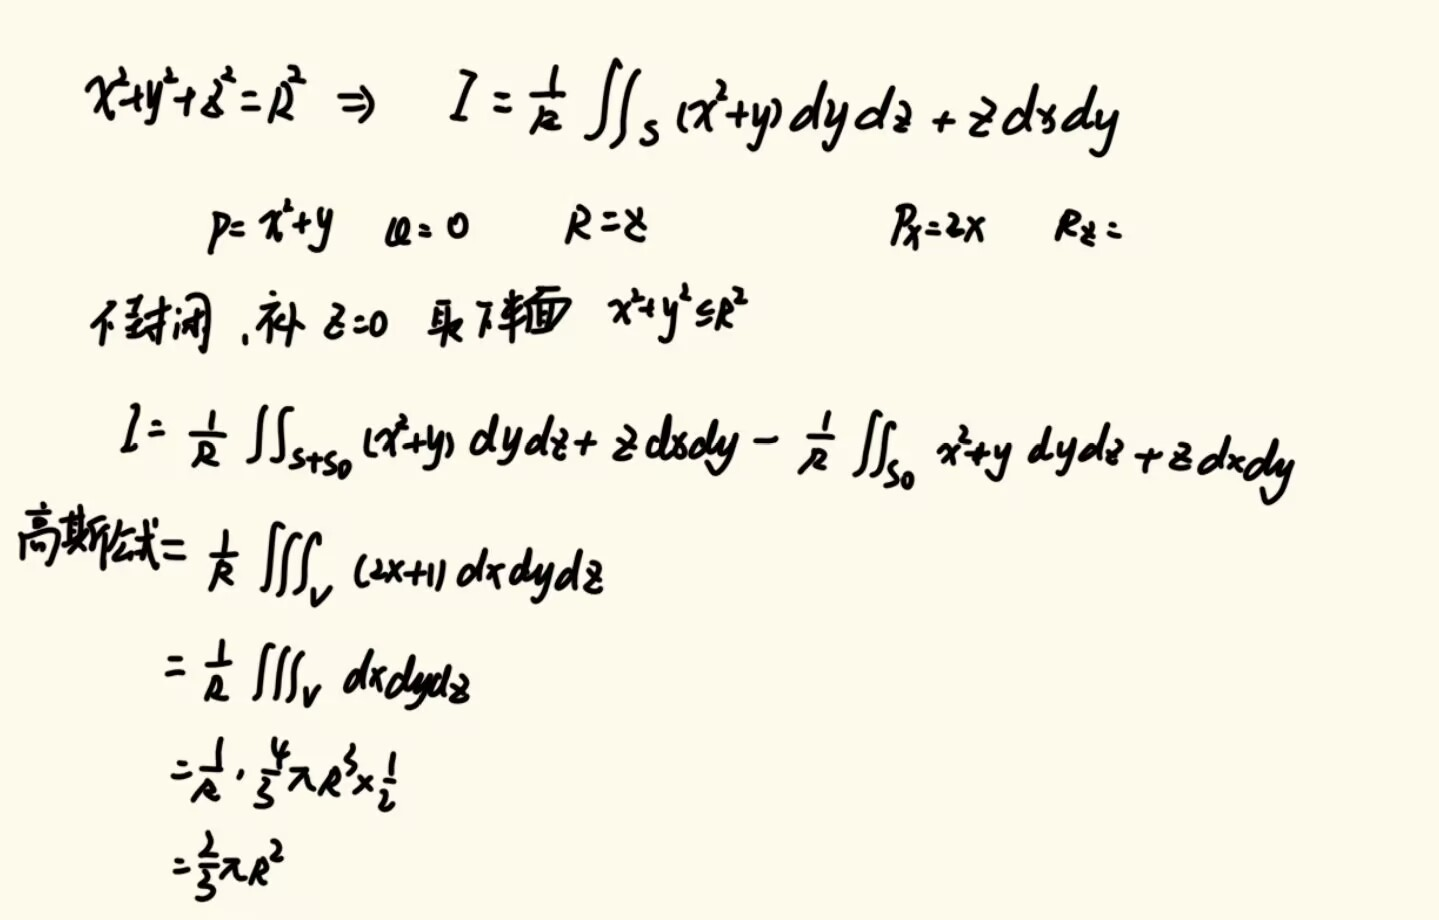 x²+y²+z²=R² ⇒ I = 1/R ∬_S (x²+y) dy dz + z dx dy
P= x²+y Q=0 R=z P_x=2x R_z=
不封闭,补 z=0 取下半面 x²+y²≤R²
I= 1/R ∬_{S+S₀} (x²+y) dy dz + z dx dy − 1/R ∬_{S₀} x²+y dy dz + z dx dy
高斯公式= 1/R ∭_V (2x+1) dx dy dz
= 1/R ∭_V dx dy dz
= 1/R · 4/3 πR³ × 1/2
= 2/3 πR²